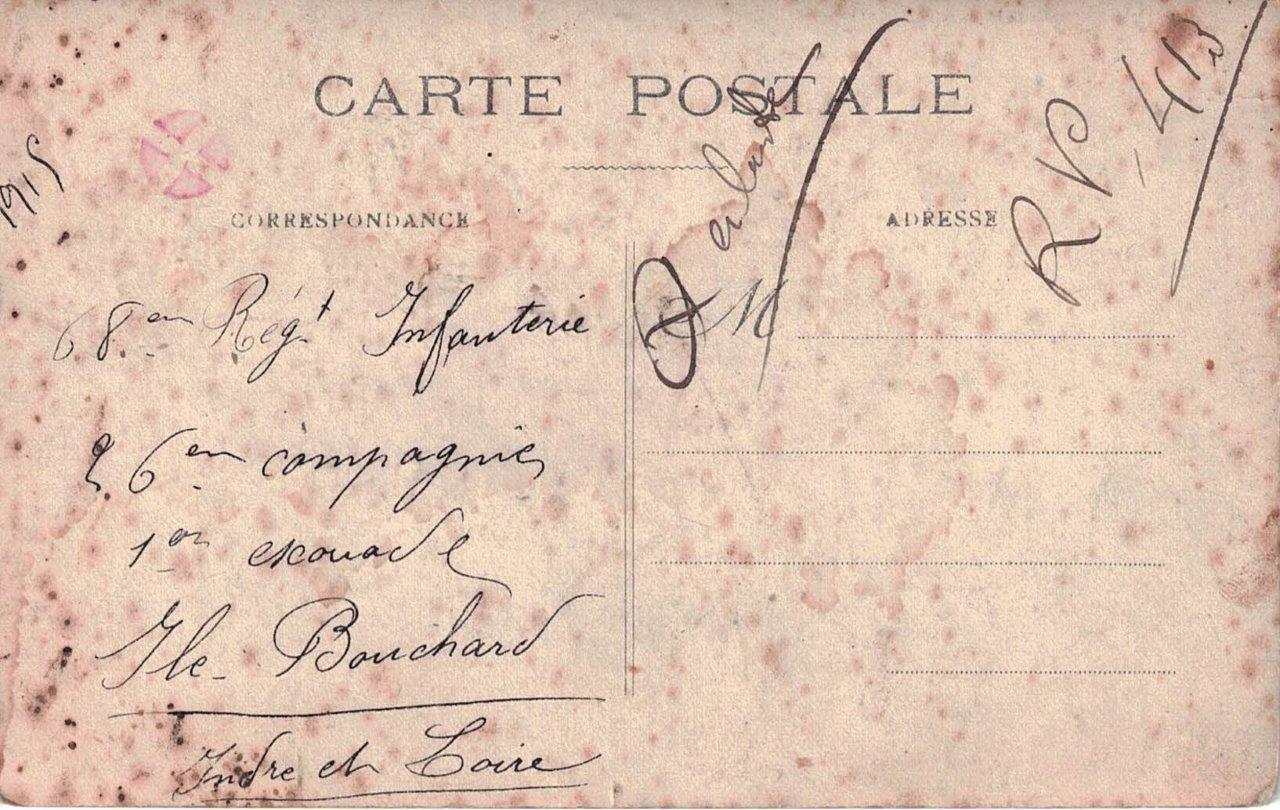 CARTE POSTALE
1915
CORRESPONDANCE
ADRESSE
RP-413
M
68em Régt Infanterie
26em compagnie
1er escouade
Ile-Bouchard
Indre et Loire